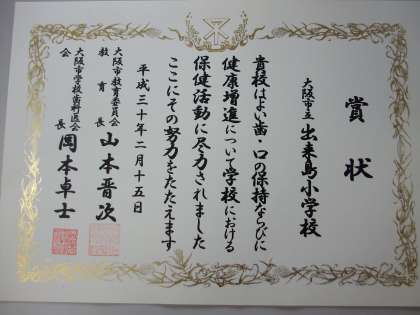 賞状
大阪市立 出来島小学校
貴校はよい歯・口の保持ならびに
健康増進について学校における
保健活動に尽力されました
ここにその努力をたたえます
平成三十年二月十五日
大阪市教育委員会
教育長 山本晋次
大阪市学校歯科医会
会長 岡本卓士